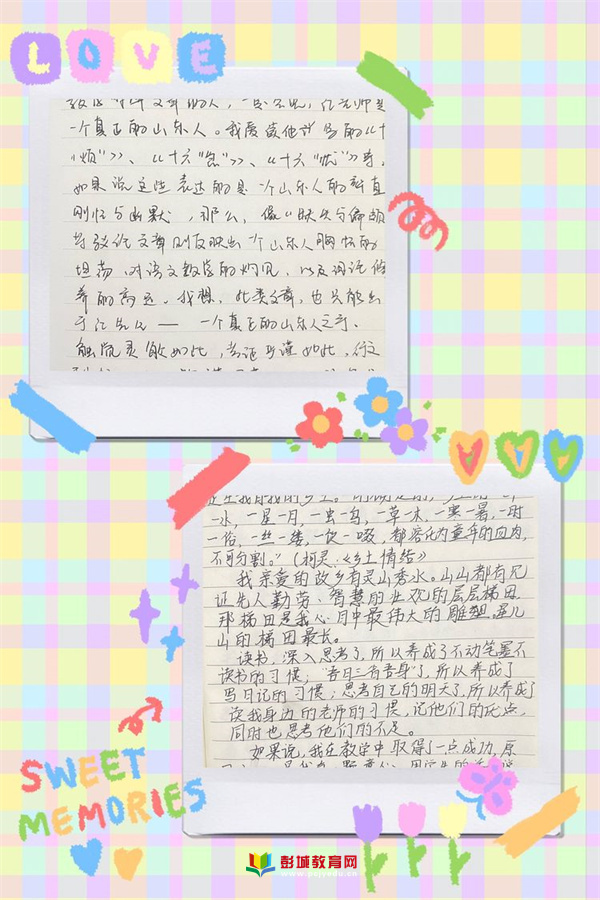 LOVE
一个真正的山东人。我爱读他计写的“十
烦”》、《十六“怠”》、《十六“忧”》等,
如果说这些表达的是一个山东人的耿直
刚怀与幽默,那么,像《缺失与偏颇
等议论文章则反映出一个山东人胸怀的
坦荡、对语文教学的灼见,以及词语修
养的高远。我想,此类文章,也只能出
于江先公——一个真正的山东人之手。
触觉灵敏如此,考证严谨如此,行文
一水,一星一月,一虫一鸟,一草一木,一寒一暑,一时
一俗,一丝一缕,一饮一啜,都溶化为童年的血肉,
不可分割。”(柯灵,《乡土情结》)
我亲爱的故乡有灵山秀水。山山都有见
证先人勤劳、智慧的业绩的层层梯田
那梯田是我心目中最伟大的雕塑,是儿
山的梯田最长。
读书,深入思考了,所以养成了不动笔墨不
读书的习惯;“吾日三省吾身”了,所以养成了
写日记的习惯;思考自己的明天了,所以养成了
读我身边的老师的习惯,记他们的优点,
同时也思考他们的不足。
如果说,我在教学中取得了一点成功,原
SWEET
MEMORIES
彭城教育网